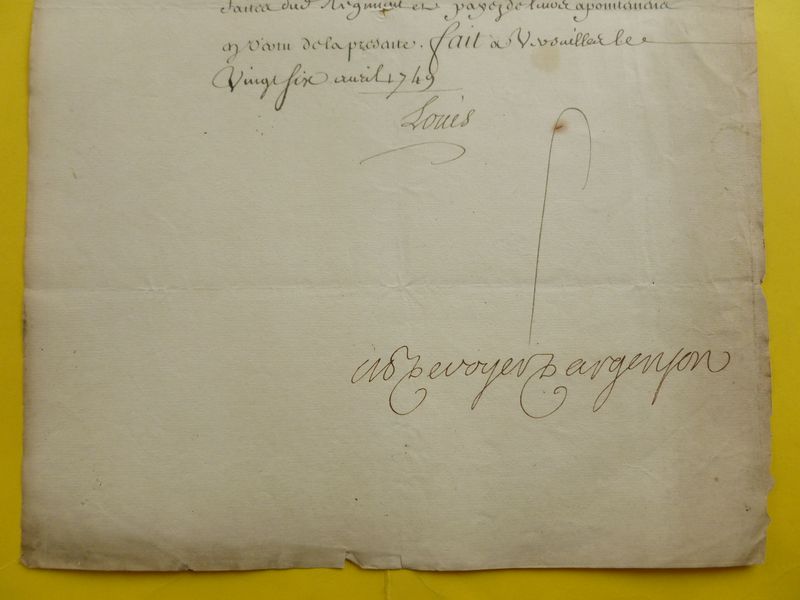 dud. Regiment et payez de leurs apointemens
en vertu de la presente. fait a Versailles le
Vingt six avril 1749
Louis
M. P. De voyer D'argenson